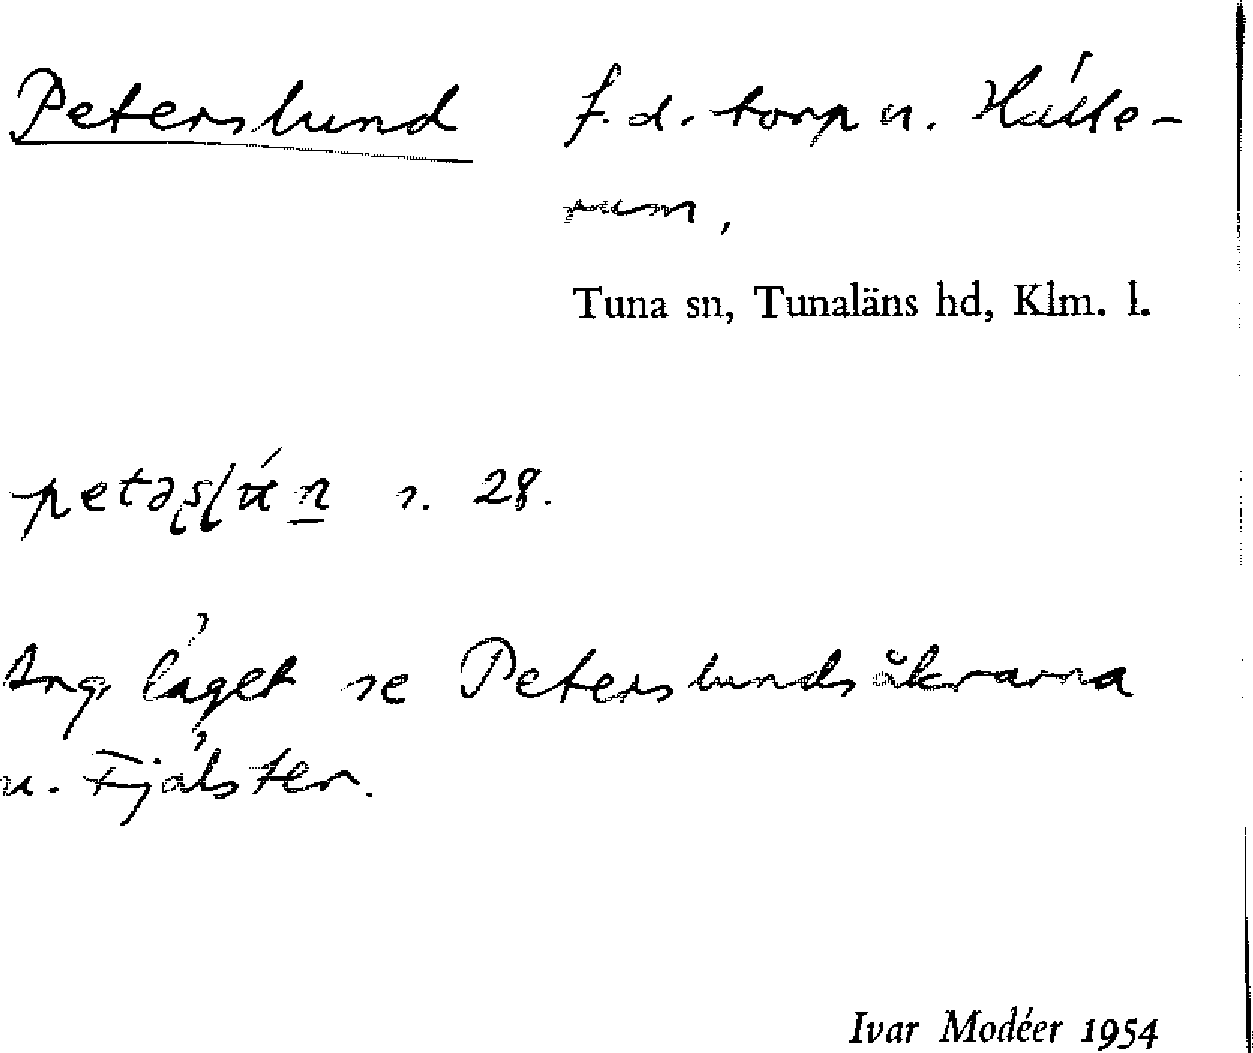 Peterslund f.d. torp u. Hálle-
rum,
Tuna sn, Tunaläns hd, Klm. l.
s. 28.
Ang. läget se Peterslundsåkrarna
u. Fjälster.
Ivar Modéer 1954